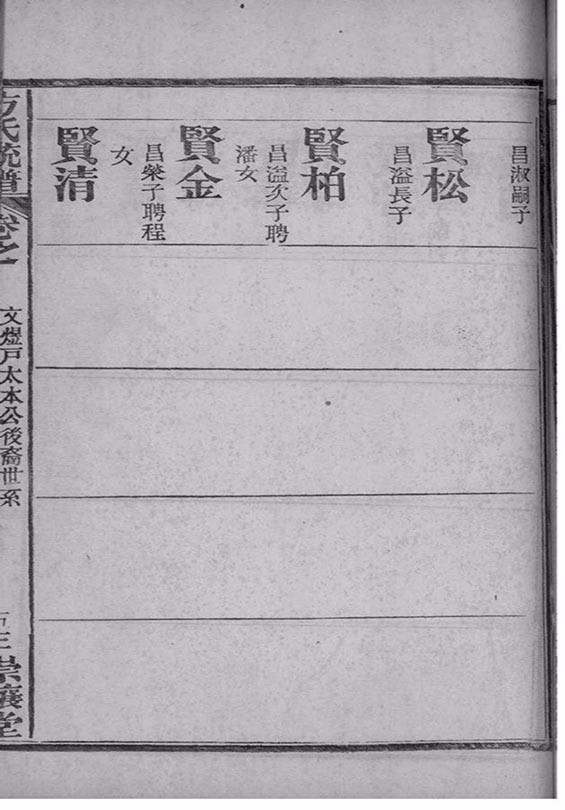 昌淑嗣子
賢松
昌溢長子
賢柏
昌溢次子聘
潘女
賢金
昌榮子聘程
女
賢清
方氏統譜
卷之
文煜戸太本公後裔世系
崇讓堂